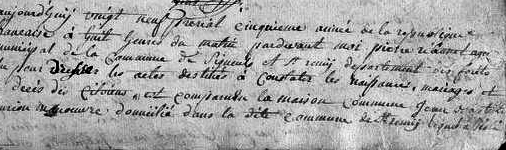 aujourd'huy vingt neuf prerial cinquieme année de la republique
francaise à huit heures du matin pardevant moi pierre
municipal de la Commune de et St remy departement des forets
pour dresser les actes destinés à Constater les naissances, mariages et
décès des Citoyens, est comparu en la maison Commune jean
manoeuvre domicilié dans la dite Commune de St remy lequel